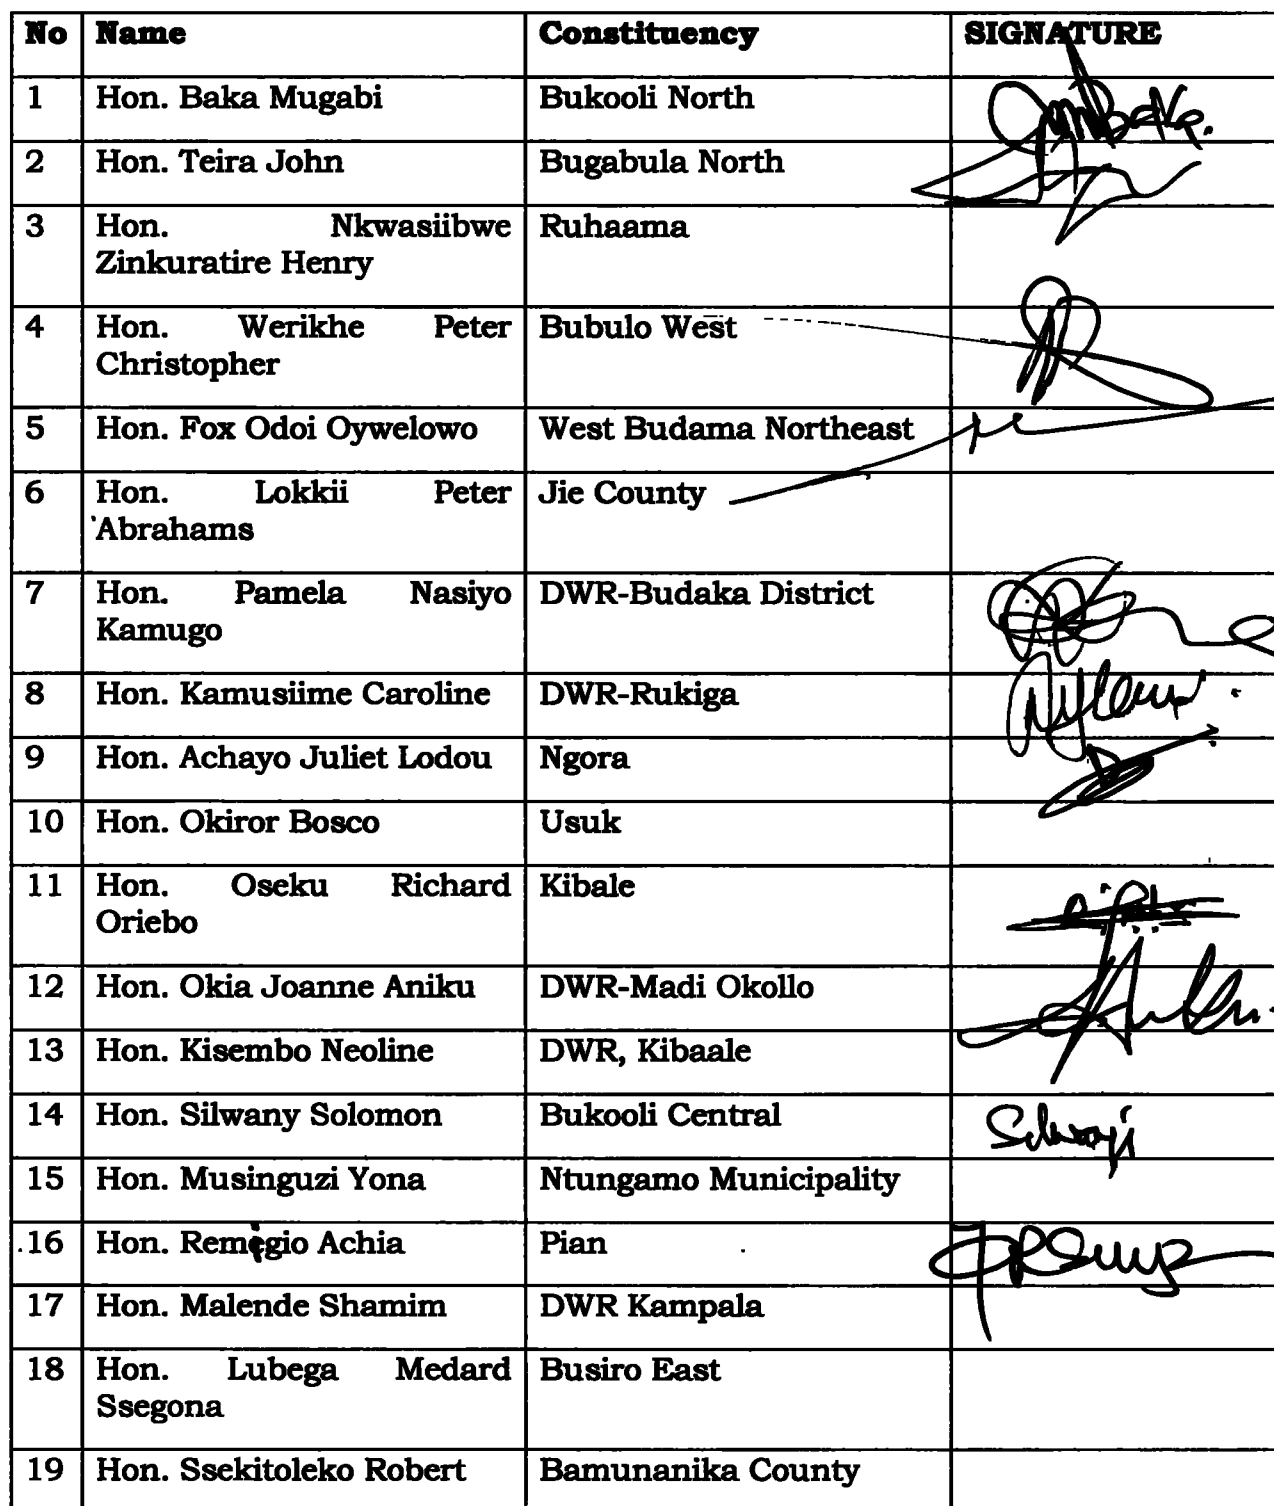 No Name Constituency SIGNATURE
1 Hon. Baka Mugabi Bukooli North
2 Hon. Teira John Bugabula North
3 Hon. Nkwasiibwe Ruhaama
Zinkuratire Henry
4 Hon. Werikhe Peter Bubulo West
Christopher
5 Hon. Fox Odoi Oywelowo West Budama Northeast
6 Hon. Lokkii Peter Jie County
Abrahams
7 Hon. Pamela Nasiyo DWR-Budaka District
Kamugo
8 Hon. Kamusiime Caroline DWR-Rukiga
9 Hon. Achayo Juliet Lodou Ngora
10 Hon. Okiror Bosco Usuk
11 Hon. Oseku Richard Kibale
Oriebo
12 Hon. Okia Joanne Aniku DWR-Madi Okollo
13 Hon. Kisembo Neoline DWR, Kibaale
14 Hon. Silwany Solomon Bukooli Central
15 Hon. Musinguzi Yona Ntungamo Municipality
16 Hon. Remigio Achia Pian
17 Hon. Malende Shamim DWR Kampala
18 Hon. Lubega Medard Busiro East
Ssegona
19 Hon. Ssekitoleko Robert Bamunanika County